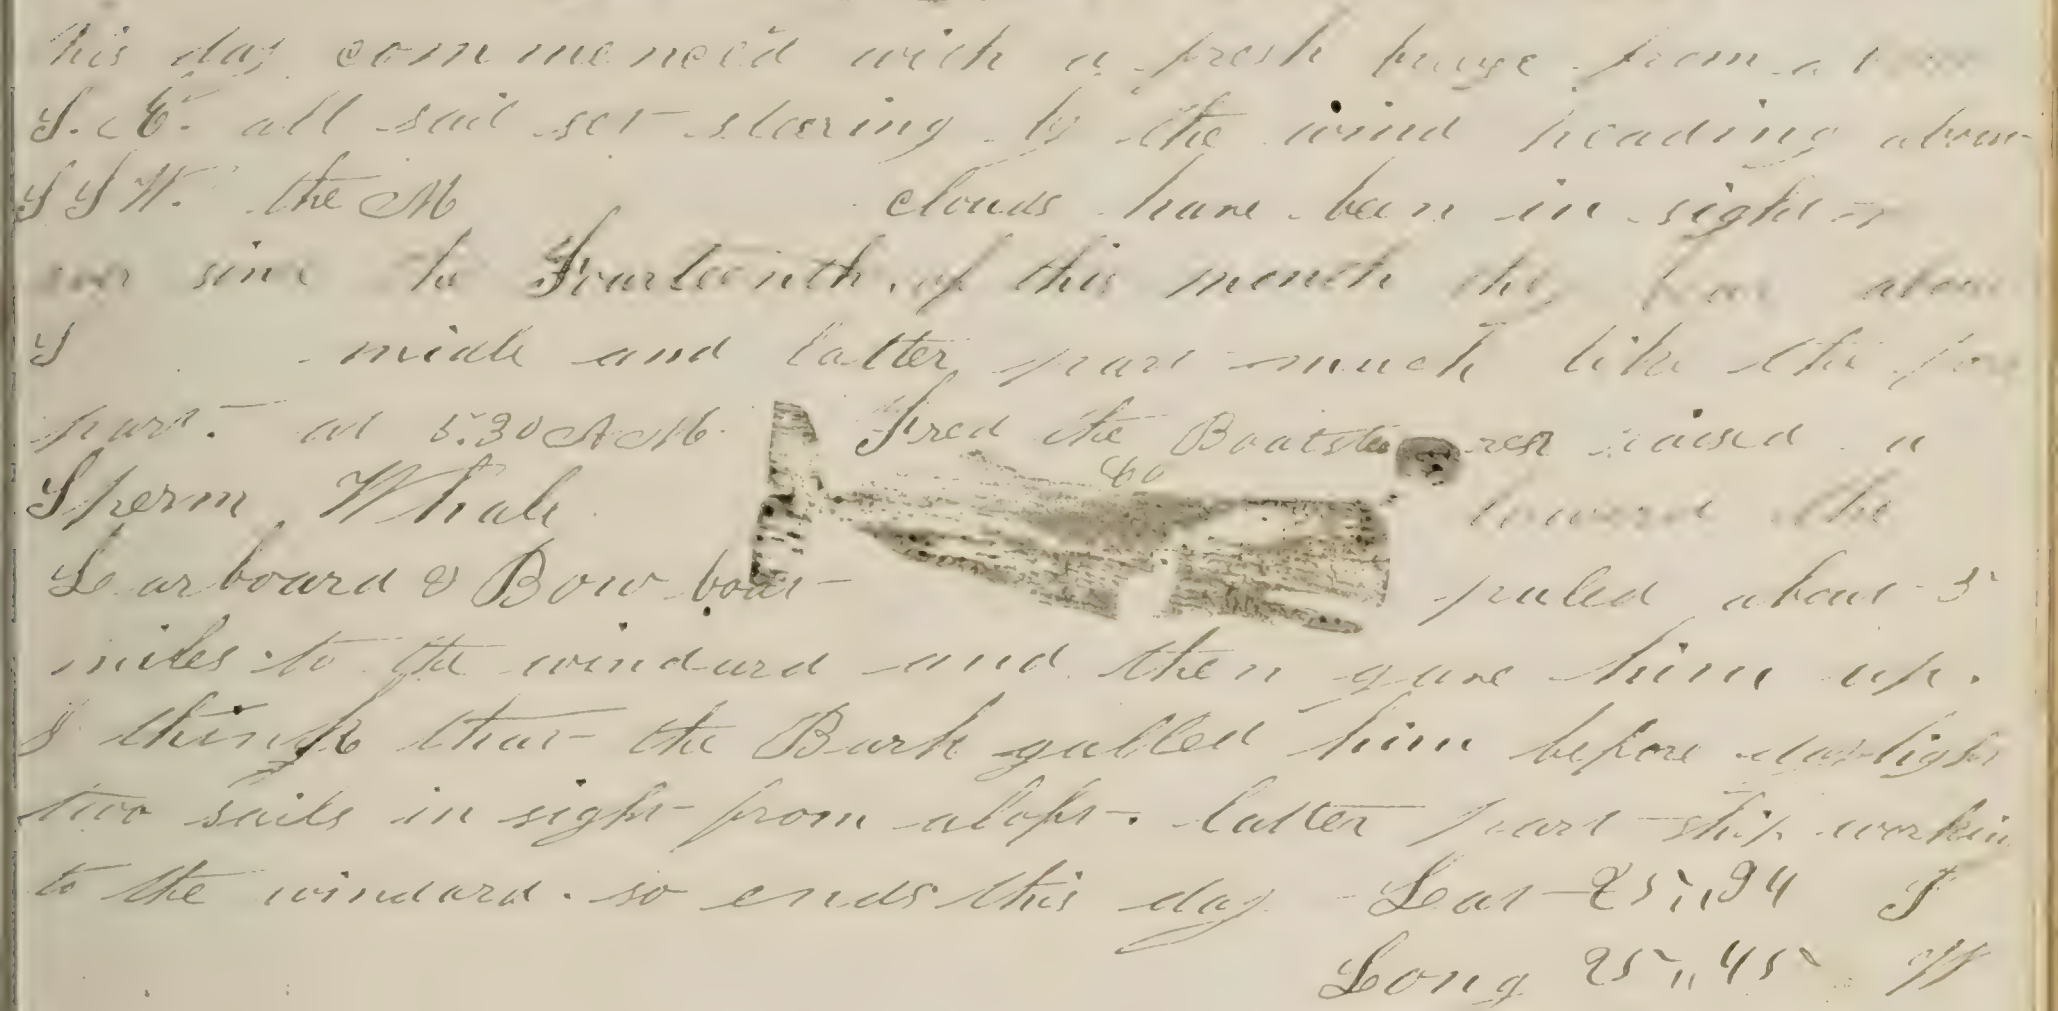 his day commenced with a fresh breeze from
S. E. all sail set stearing by the wind heading about
S S W. the M clouds have been in sight
ever since the Fourteenth of this month they bear about
S midle and latter part much like the fore
part. at 5.30 A M. Fred the Boatsteerer raised a
60
Sperm Whale toward the
Larboard & Bow boat puled about 5
miles to the windard and then gave him up.
I think that the Bark gallled him before daylight
two sails in sight from aloft. latter part ship workin
to the windard. so ends this day Lat 25,,34 S
Long 25,,45 W